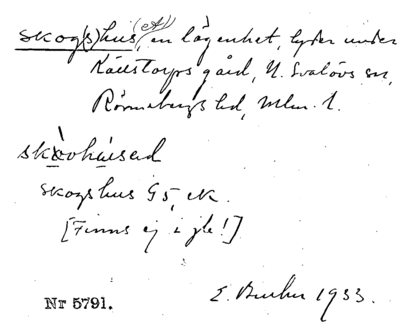 skog(s)hus(et), en lägenhet, lyder under
Källstorps gård, N. Svalövs sn,
Rönnebergs hd, Mlm. l.
skòvhúsəd
skogshus G5, ek.
[Finns ej i jb!]
Nr 5791. E. 1933.